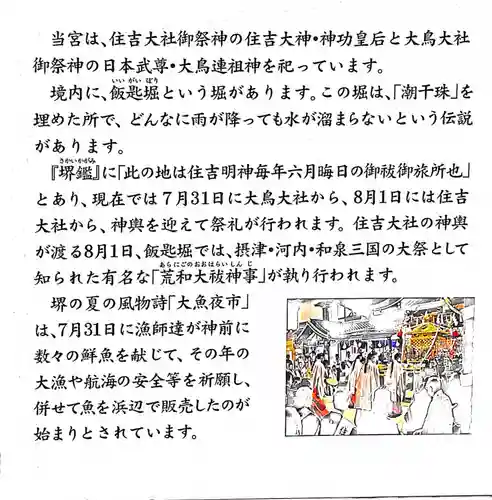 当宮は、住吉大社御祭神の住吉大神・神功皇后と大鳥大社
御祭神の日本武尊・大鳥連祖神を祀っています。
境内に、飯匙堀という堀があります。この堀は、「潮干珠」を
いいがいぼり
埋めた所で、どんなに雨が降っても水が溜まらないという伝説
があります。
さかいかがみ
『堺鑑』に「此の地は住吉明神毎年六月晦日の御祓御旅所也」
とあり、現在では7月31日に大鳥大社から、8月1日には住吉
大社から、神輿を迎えて祭礼が行われます。住吉大社の神輿
が渡る8月1日、飯匙堀では、摂津・河内・和泉三国の大祭として
あらにごのおおはらいしんじ
知られた有名な「荒和大祓神事」が執り行われます。
堺の夏の風物詩「大魚夜市」
は、7月31日に漁師達が神前に
数々の鮮魚を献じて、その年の
大漁や航海の安全等を祈願し、
併せて魚を浜辺で販売したのが
始まりとされています。